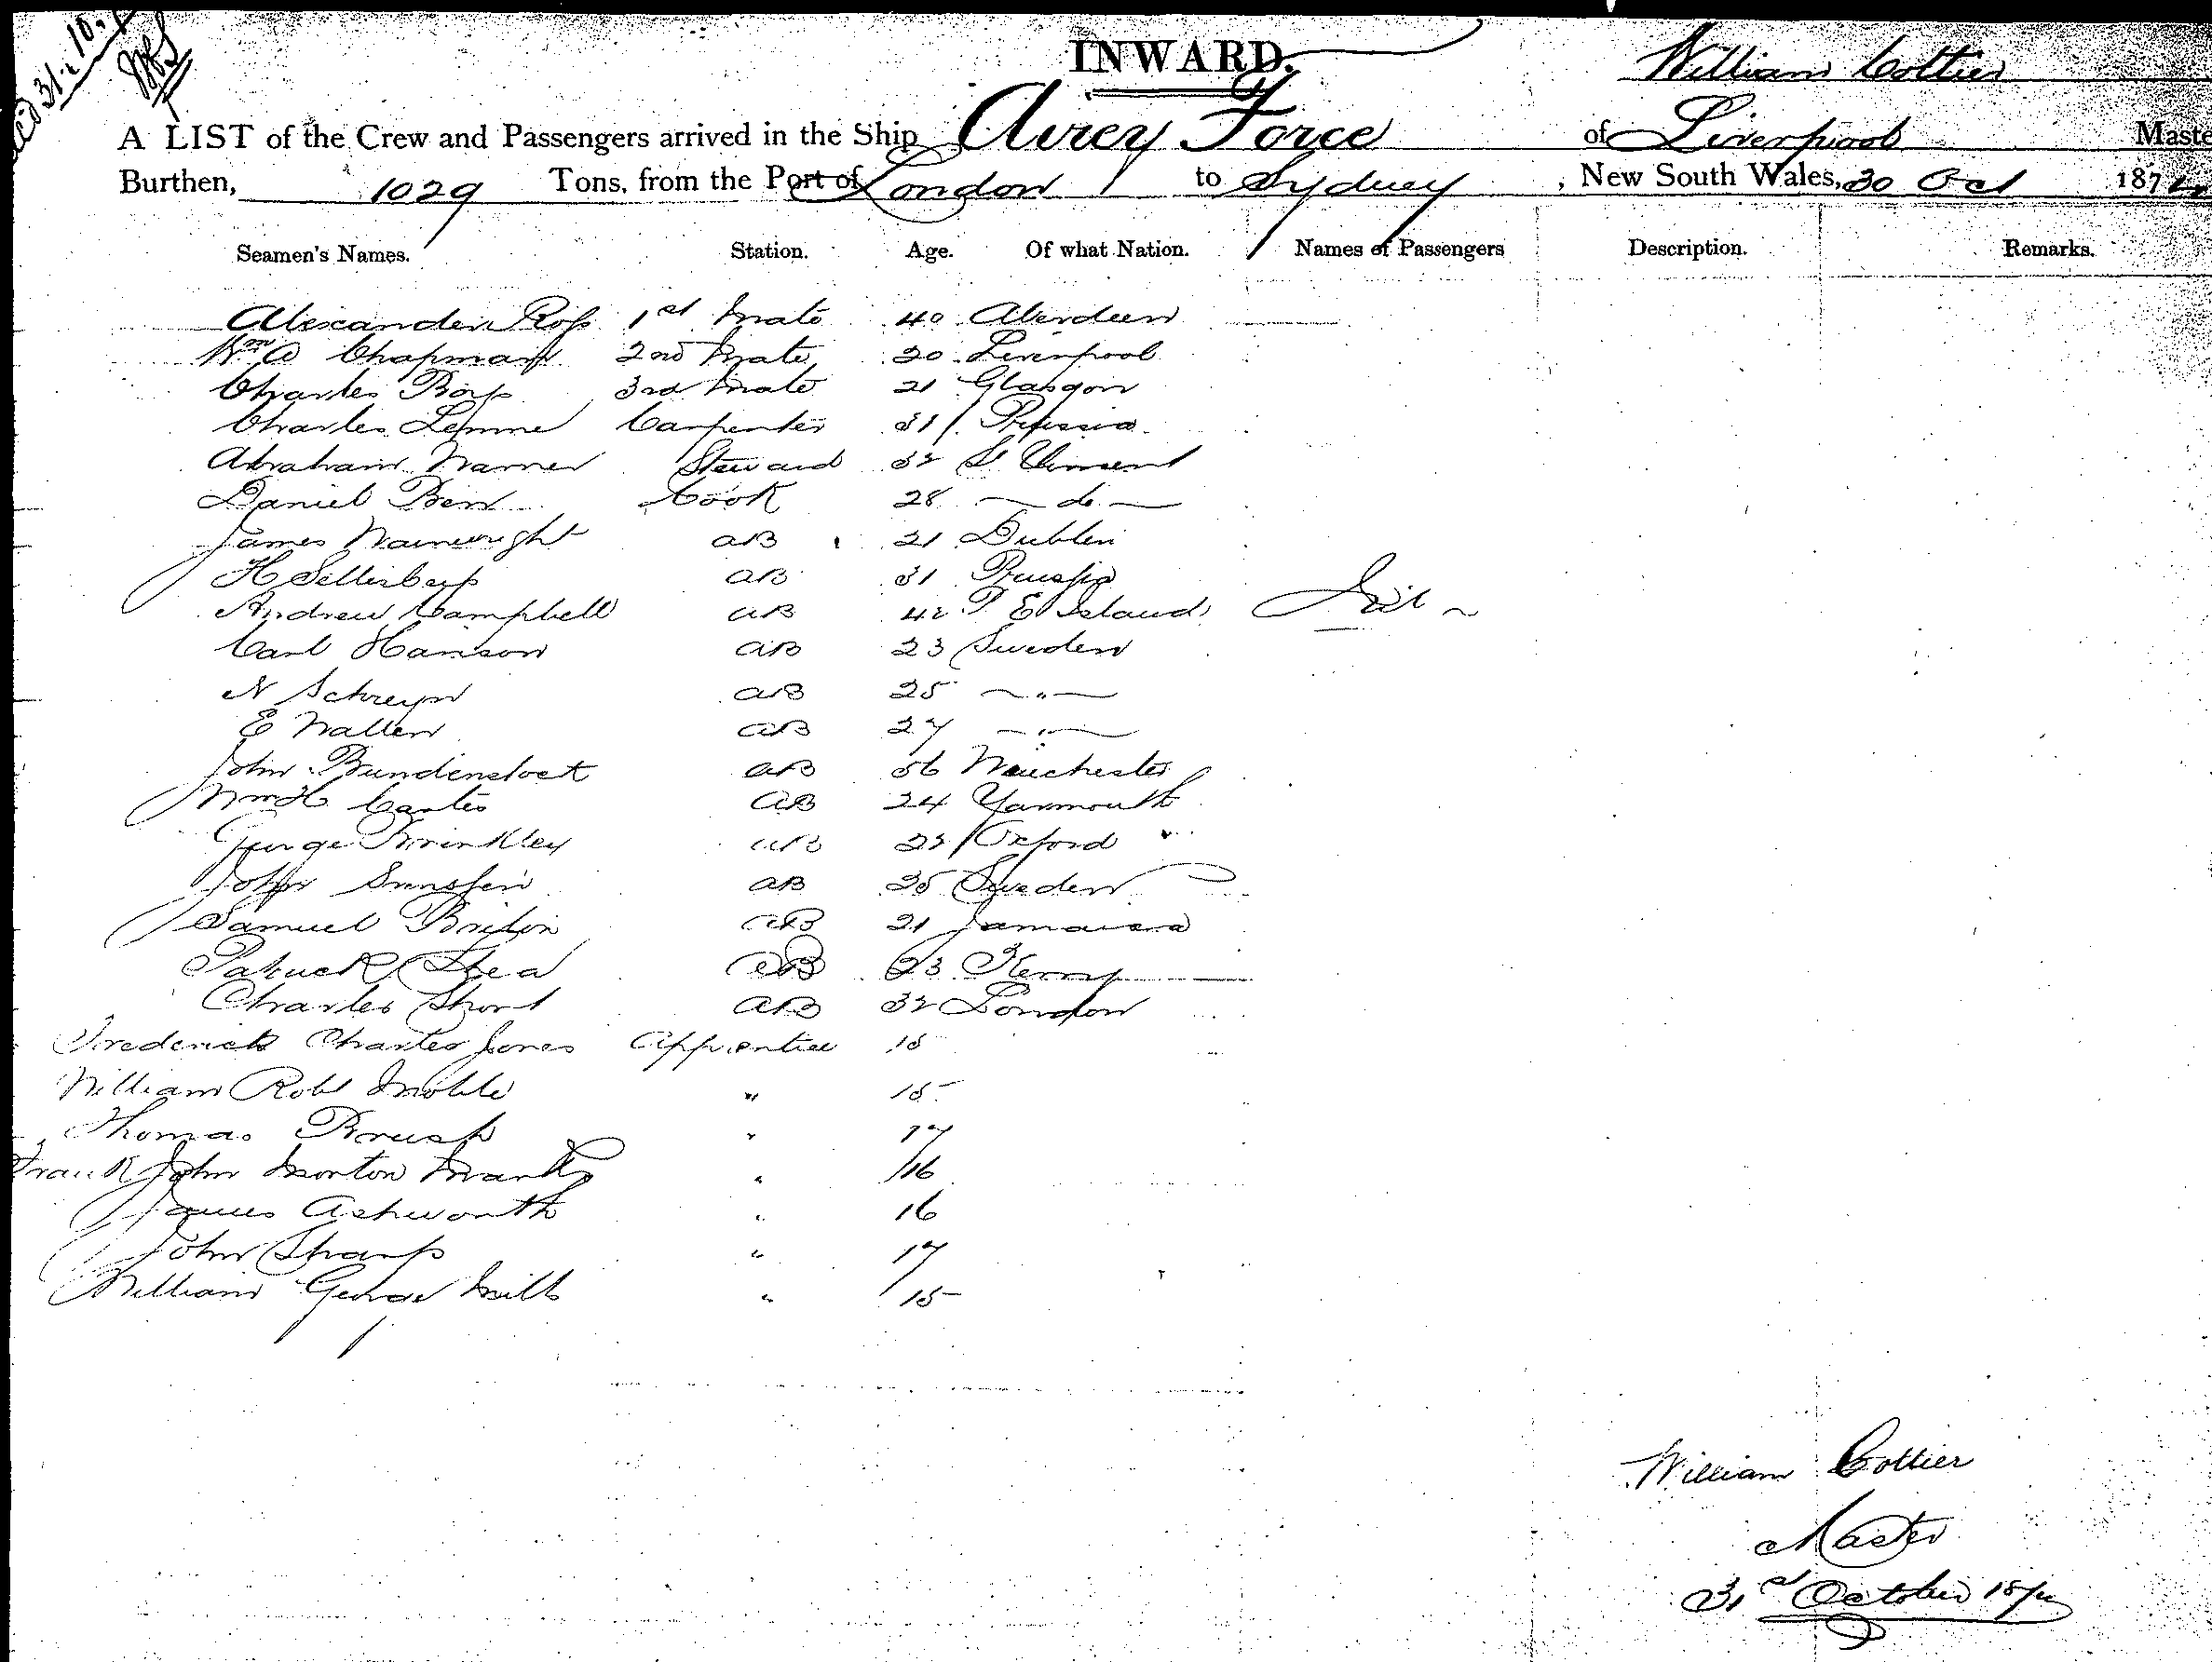 recd 31.10.
INWARD.
William Cottier
A LIST of the Crew and Passengers arrived in the Ship Airey Force of Liverpool Maste
Burthen, 1029 Tons, from the Port of London to Sydney, New South Wales, 30 Oct 1874
Seamen's Names. Station. Age. Of what Nation. Names of Passengers Description. Remarks.
Alexander Ross 1st Mate 40 Aberdeen
Wm A Chapman 2nd Mate 20 Liverpool
Charles 3rd Mate 21 Glasgow
Charles Lemme Carpenter 31 Prussia
Abraham Warner Steward 32 St Vincent
Daniel Ben Cook 28 — do —
James Wainwright AB 21 Dublin
H AB 31 Prussia
Andrew Campbell AB 42 P E Island Nil
Carl Hanson AB 23 Sweden
N AB 25 — " —
E Wallen AB 27 — " —
John AB 56 Manchester
Wm H Carter AB 24 Yarmouth
George Brinkley AB 22 Oxford
John AB 25 Sweden
Samuel AB 21 Jamaica
Patrick Shea AB 23 Kerry
Charles Short AB 32 London
Frederick Charles Jones Apprentice 15
William Robt Noble " 15
Thomas Brush " 17
Frank John Morton Marks " 16
James Ashworth " 16
John Sharp " 17
William George Mills " 15
William Cottier
Master
31st October 1874